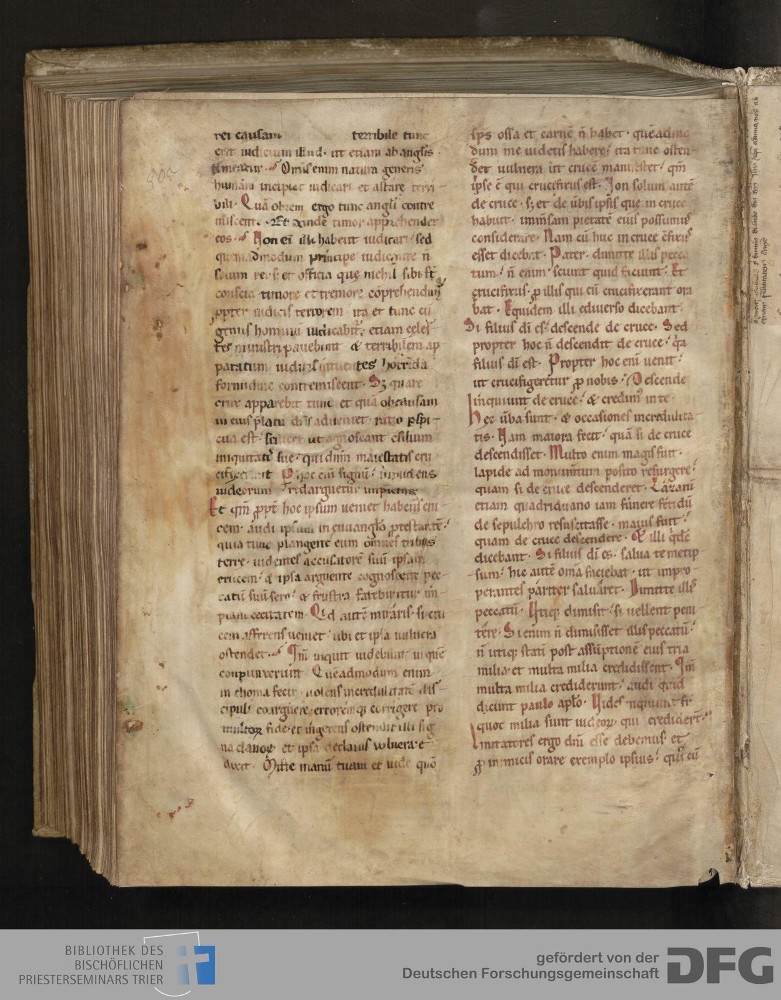 rei causam terribile tunc
erit iudicium illud · ut etiam ab anglis
timeatur · Omīs enim natura generis
humani incipiet iudicari et astare terri
bili · Quā obrem ergo tunc angli contre
miscent · Et unde timor apprehendet
eos · Non eī illi habent iudicari · sed
quemadmodum principe iudicante n̄
solum rei · s; et officia que nichil sibi st̄
conscia timore et tremore cōprehendunt̄
ꝓpter iudicis terrorem · ita et tunc cū
genus hominū iudicabit᷑ · etiam celes
tes ministri pavebunt & terribilem ap
paratum iudicis intuentes horrida
formidine contremiscent · Sꝫ quare
crux apparebit tunc et quā ob causam
cua est · scilicet ut agnoscant csilium
iniquitatis sue · qui dn̄m maiestatis cru
cifixerunt P hoc enī signū impudens
iudeorum redarguetur impietas
Et qm̄ ꝓpt̄ hoc ipsum veniet habens cru
cem · audi ipsum in euuanglō ꝓtestantē ·
quia tunc plangent eum omnes tribus
terre · uidentes accusatorē suū ipsam
crucem · & ipsa arguente cognoscent pec
catū suū sero · & frustra fatebuntur im
piam cecitatem · Qid autē miraris · si cru
cem afferens veniet · ubi et ipsa vulnera
ostendet · Tm̄ inquit uidebunt in quē
conpunxerunt Quēadmodum enim
in thoma fecit uolens incredulitatē dis
cipuli coarguere · erroremq; corrigere pro
multoꝝ fide · et ingerens ostendit illi sig
na clavoꝝ et ipsa declaus vulnera · et
dixit · Mitte manū tuam et uide quō
sp̄s ossa et carnē n̄ habet · quēadmo
dum me uidetis habere · ita tunc osten
det vulnera ut cruce manifestet · qm̄
ipse ē qui crucifixus est · Non solum autē
de cruce · s; et de ūbis ipsis que in cruce
habuit · inmēsam pietatē eius possumus
considerare · Nam cū huc in cruce cfixus
esset dicebat · Pater · dimitte illis pecca
tum · n̄ enim sciunt quid faciunt · Et
crucifixus · ꝓ illis qui eū crucifixerant ora
bat · Equidem illi ediuerso dicebant
Si filius dī es · descende de cruce · Sed
propter hoc n̄ descendit de cruce · qa
filius dī est · Propter hoc enī uenit ·
ut crucifigeretur ꝓ nobis · Descende
inquiunt de cruce · & credim᷑ in te ·
Hec ūba sunt · & occasiones incredulita
tis · Nam maiora fecit · quā si de cruce
descendisset · Multo enim magis fuit ·
lapide ad monumtum posito resurgere ·
quam si de cruce descenderet · Lazarū
etiam quadriduano iam funere fetidū
de sepulchro resuscitasse · maius fuit ·
quam de cruce descendere · & illi qdē
dicebant · Si filius dī es · salua te metip
sum · hic autē om̄a faciebat · ut impro
perantes pariter saluaret · Dimitte illis
peccatū · Utiq; dimisit · si vellent peni
tere · Si enim n̄ dimisisset illis peccatū ·
n̄ utiq; statī post assūptionē eius tria
milia · et multa milia credidissent · Qm̄
multa milia crediderunt · audi quid
dicunt paulo aplō · Uides inquiunt fr̄
quot milia sunt iudeoꝝ qui crediderūt ·
Imitatores ergo dn̄i esse debemus et
ꝓ inimicis orare exemplo ipsius · quis cū
BIBLIOTHEK DES
BISCHÖFLICHEN
PRIESTERSEMINARS TRIER
gefördert von der
Deutschen Forschungsgemeinschaft
DFG